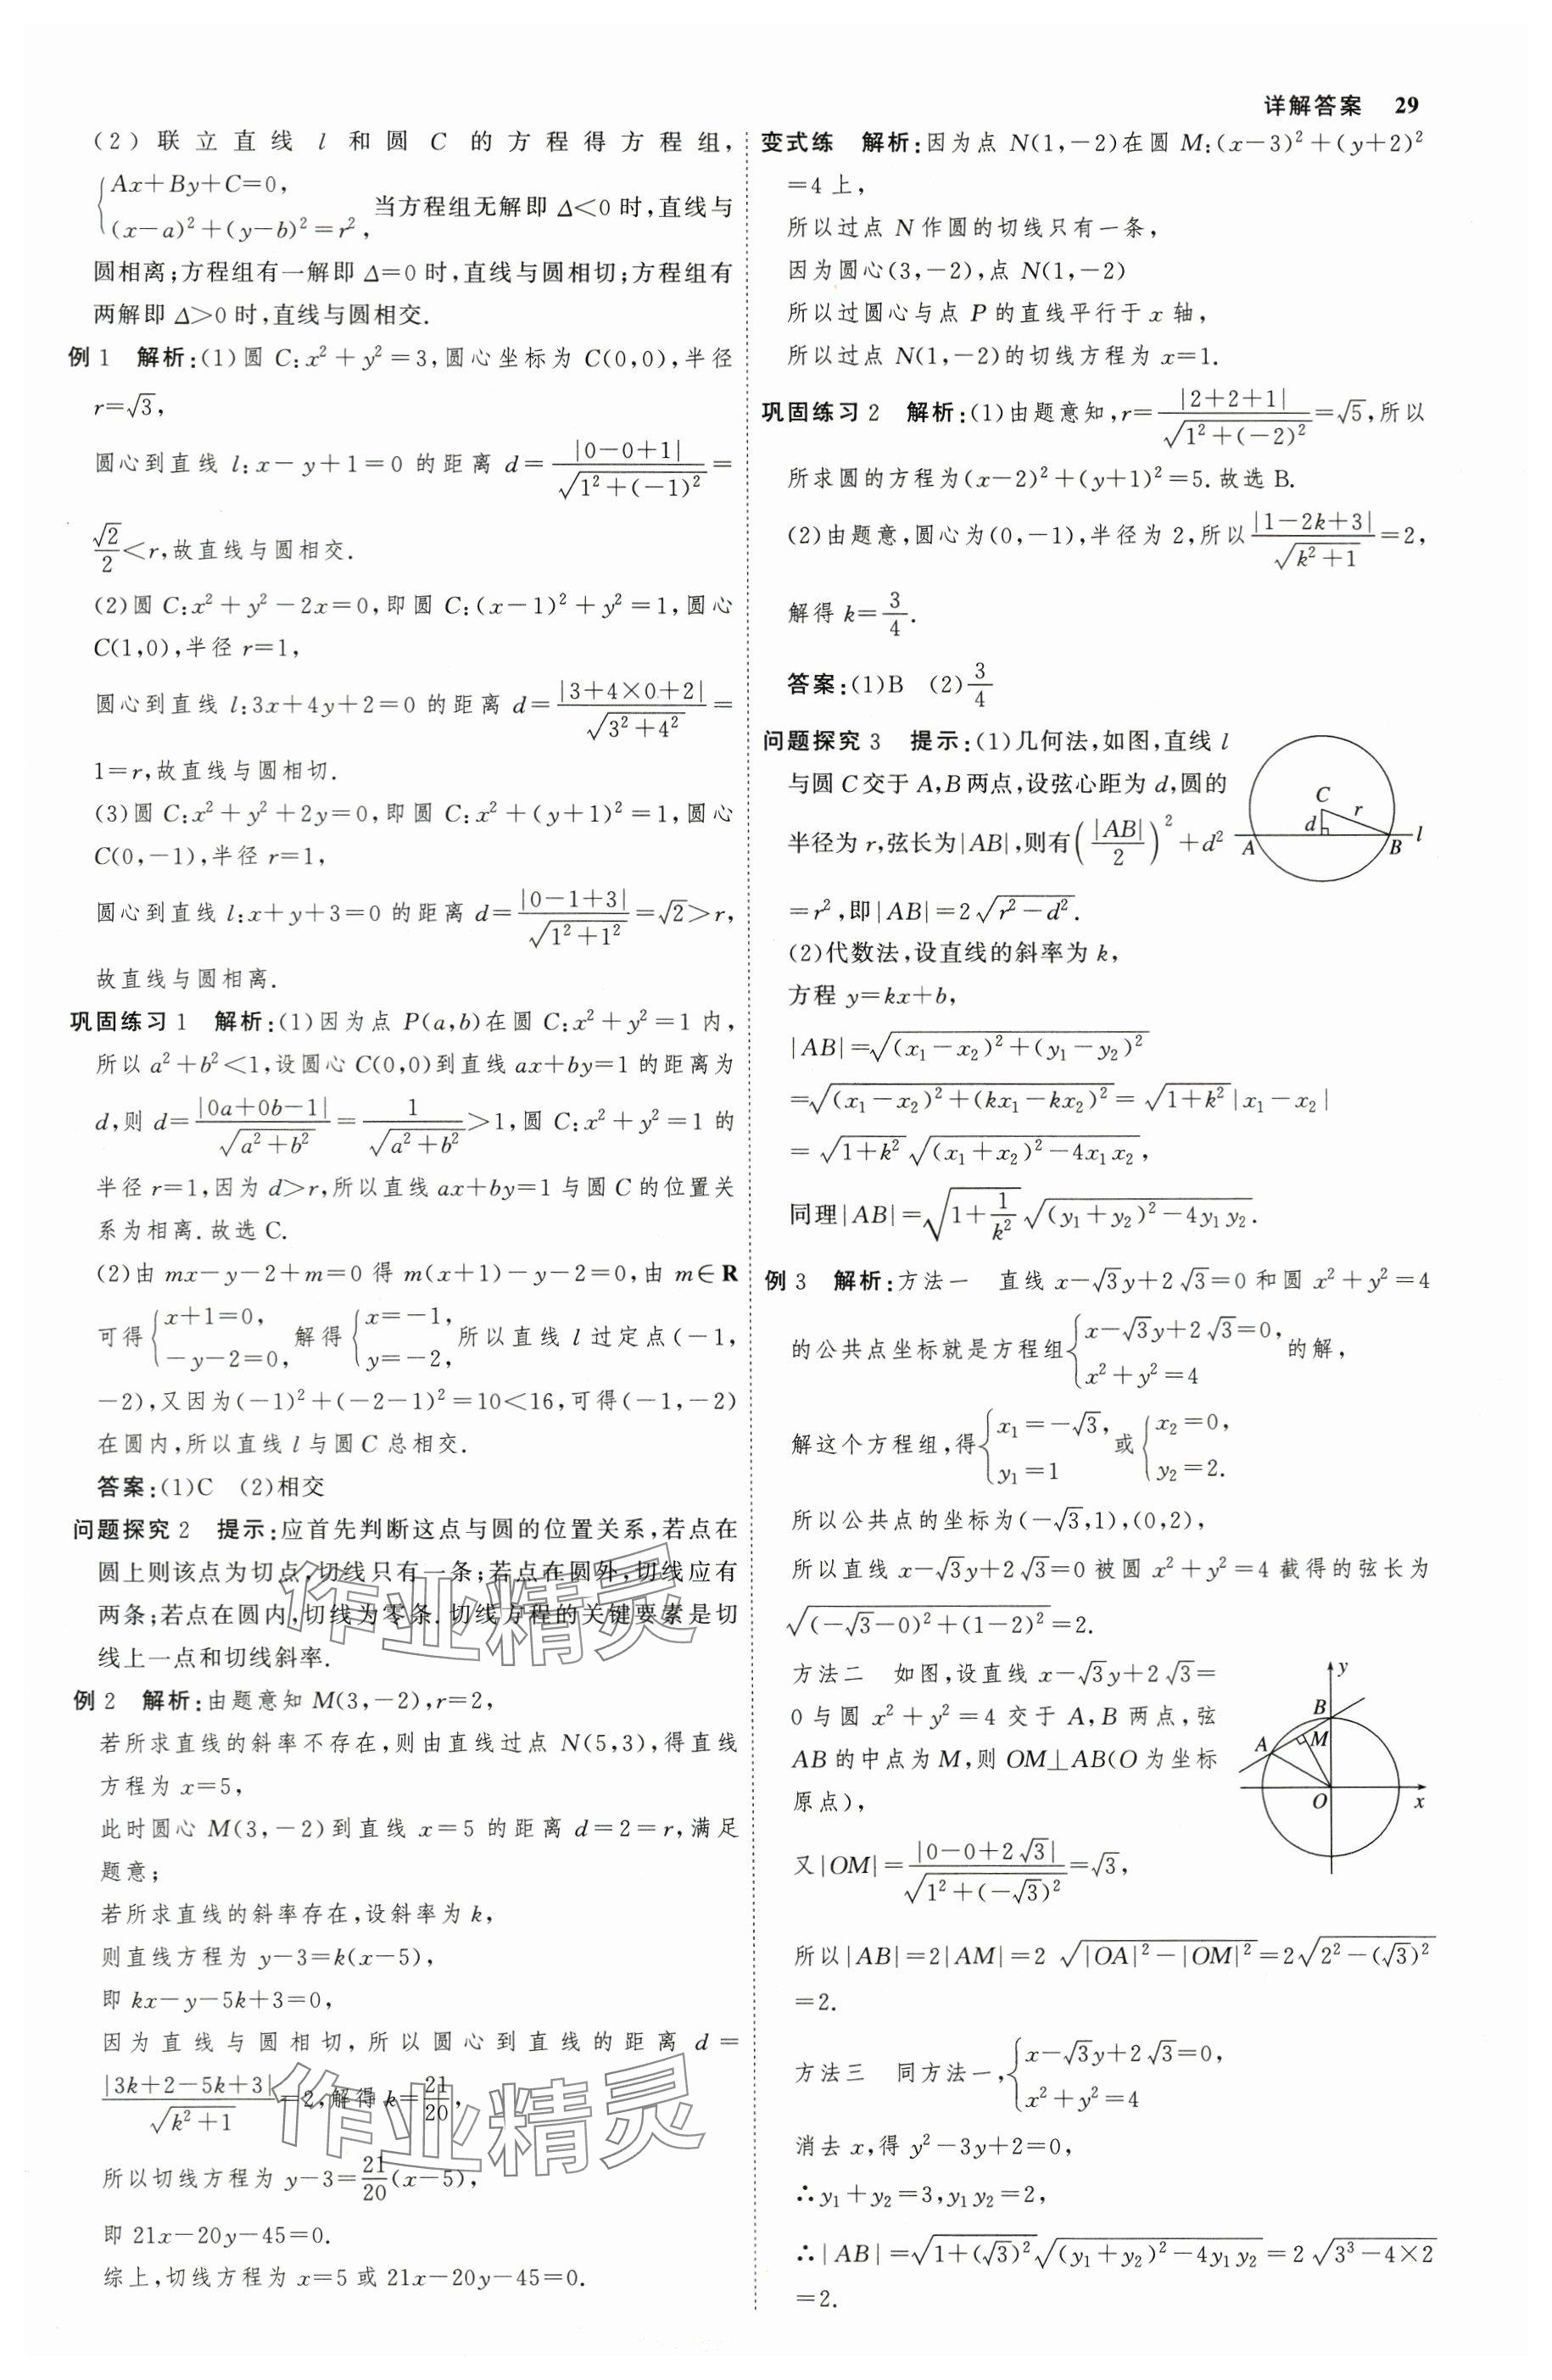 详解答案 29
(2)联立直线 l 和圆 C 的方程得方程组,
{Ax+By+C=0,
(x-a)²+(y-b)²=r², 当方程组无解即 Δ<0 时,直线与
圆相离;方程组有一解即 Δ=0 时,直线与圆相切;方程组有
两解即 Δ>0 时,直线与圆相交.
例 1 解析:(1)圆 C:x²+y²=3,圆心坐标为 C(0,0),半径
r=√3,
圆心到直线 l:x-y+1=0 的距离 d=|0-0+1|/√(1²+(-1)²)=
√2/2<r,故直线与圆相交.
(2)圆 C:x²+y²-2x=0,即圆 C:(x-1)²+y²=1,圆心
C(1,0),半径 r=1,
圆心到直线 l:3x+4y+2=0 的距离 d=|3+4×0+2|/√(3²+4²)=
1=r,故直线与圆相切.
(3)圆 C:x²+y²+2y=0,即圆 C:x²+(y+1)²=1,圆心
C(0,-1),半径 r=1,
圆心到直线 l:x+y+3=0 的距离 d=|0-1+3|/√(1²+1²)=√2>r,
故直线与圆相离.
巩固练习 1 解析:(1)因为点 P(a,b)在圆 C:x²+y²=1 内,
所以 a²+b²<1,设圆心 C(0,0)到直线 ax+by=1 的距离为
d,则 d=|0a+0b-1|/√(a²+b²)=1/√(a²+b²)>1,圆 C:x²+y²=1 的
半径 r=1,因为 d>r,所以直线 ax+by=1 与圆 C 的位置关
系为相离.故选 C.
(2)由 mx-y-2+m=0 得 m(x+1)-y-2=0,由 m∈R
可得{x+1=0, -y-2=0, 解得{x=-1, y=-2, 所以直线 l 过定点(-1,
-2),又因为(-1)²+(-2-1)²=10<16,可得(-1,-2)
在圆内,所以直线 l 与圆 C 总相交.
答案:(1)C (2)相交
问题探究 2 提示:应首先判断这点与圆的位置关系,若点在
圆上则该点为切点,切线只有一条;若点在圆外,切线应有
两条;若点在圆内,切线为零条.切线方程的关键要素是切
线上一点和切线斜率.
例 2 解析:由题意知 M(3,-2),r=2,
若所求直线的斜率不存在,则由直线过点 N(5,3),得直线
方程为 x=5,
此时圆心 M(3,-2)到直线 x=5 的距离 d=2=r,满足
题意;
若所求直线的斜率存在,设斜率为 k,
则直线方程为 y-3=k(x-5),
即 kx-y-5k+3=0,
因为直线与圆相切,所以圆心到直线的距离 d=
|3k+2-5k+3|/√(k²+1)=2,解得 k=21/20,
所以切线方程为 y-3=21/20(x-5),
即 21x-20y-45=0.
综上,切线方程为 x=5 或 21x-20y-45=0.
变式练 解析:因为点 N(1,-2)在圆 M:(x-3)²+(y+2)²
=4 上,
所以过点 N 作圆的切线只有一条,
因为圆心(3,-2),点 N(1,-2)
所以过圆心与点 P 的直线平行于 x 轴,
所以过点 N(1,-2)的切线方程为 x=1.
巩固练习 2 解析:(1)由题意知,r=|2+2+1|/√(1²+(-2)²)=√5,所以
所求圆的方程为(x-2)²+(y+1)²=5.故选 B.
(2)由题意,圆心为(0,-1),半径为 2,所以|1-2k+3|/√(k²+1)=2,
解得 k=3/4.
答案:(1)B (2)3/4
问题探究 3 提示:(1)几何法,如图,直线 l
与圆 C 交于 A,B 两点,设弦心距为 d,圆的
半径为 r,弦长为|AB|,则有(|AB|/2)²+d²
=r²,即|AB|=2√(r²-d²).
C
d
r
A
B
l
(2)代数法,设直线的斜率为 k,
方程 y=kx+b,
|AB|=√((x₁-x₂)²+(y₁-y₂)²)
=√((x₁-x₂)²+(kx₁-kx₂)²)=√(1+k²)|x₁-x₂|
=√(1+k²)√((x₁+x₂)²-4x₁x₂),
同理|AB|=√(1+1/k²)√((y₁+y₂)²-4y₁y₂).
例 3 解析:方法一 直线 x-√3y+2√3=0 和圆 x²+y²=4
的公共点坐标就是方程组{x-√3y+2√3=0, x²+y²=4 的解,
解这个方程组,得{x₁=-√3, y₁=1 或{x₂=0, y₂=2.
所以公共点的坐标为(-√3,1),(0,2),
所以直线 x-√3y+2√3=0 被圆 x²+y²=4 截得的弦长为
√((-√3-0)²+(1-2)²)=2.
方法二 如图,设直线 x-√3y+2√3=
0 与圆 x²+y²=4 交于 A,B 两点,弦
AB 的中点为 M,则 OM⊥AB(O 为坐标
原点),
y
B
M
A
O
x
又|OM|=|0-0+2√3|/√(1²+(-√3)²)=√3,
所以|AB|=2|AM|=2√(|OA|²-|OM|²)=2√(2²-(√3)²)
=2.
方法三 同方法一,{x-√3y+2√3=0, x²+y²=4
消去 x,得 y²-3y+2=0,
∴y₁+y₂=3,y₁y₂=2,
∴|AB|=√(1+(√3)²)√((y₁+y₂)²-4y₁y₂)=2√(3³-4×2)
=2.
作业精灵
作业精灵